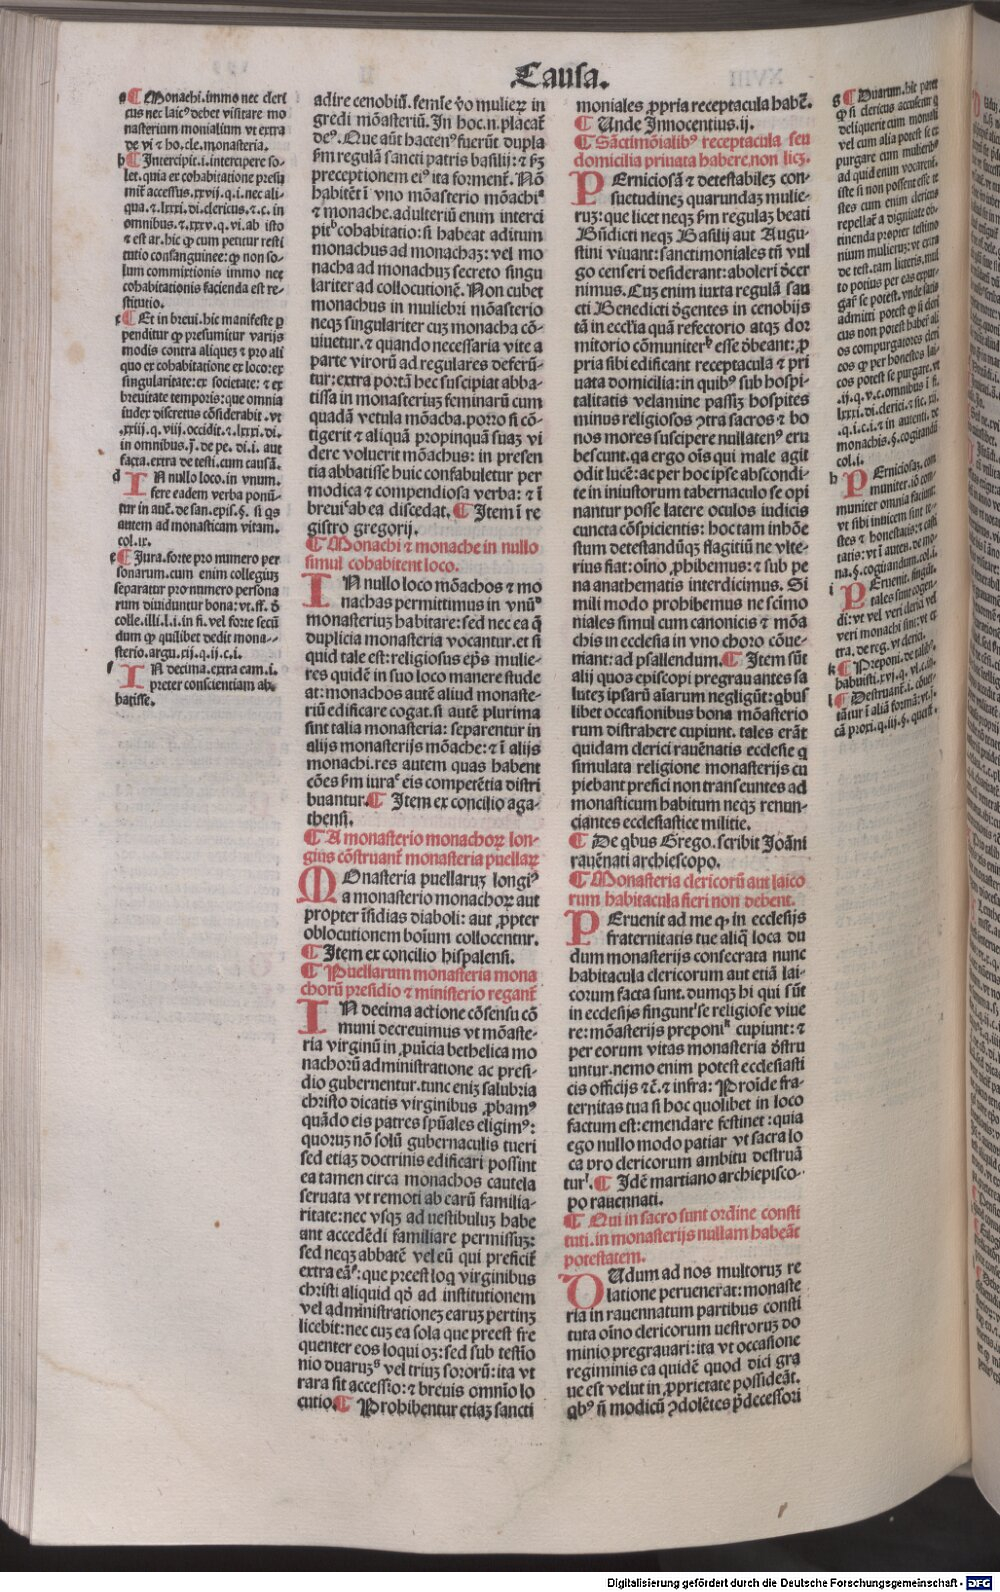 Causa.
a ¶ Monachi. immo nec cleri
cus nec laicꝰ debet visitare mo
nasterium monialium vt extra
de vi ⁊ ho. cle. monasteria.
b ¶ Intercipit. i. intercipere so-
let. quia ex cohabitatione presu
mit̄ accessus. xxvij. q. i. nec ali-
qua. ⁊ lxxxi. di. clericus. ⁊ c. in
omnibus. ⁊. xxxv. q. vi. ab isto
⁊ est ar. hic ꝙ cum petitur resti
tutio consanguinee: ꝙ non so-
lum commixtionis immo nec
cohabitationis facienda est re-
stitutio.
c ¶ Et in breui. hic manifeste ꝑ
penditur ꝙ presumitur varijs
modis contra aliquez ⁊ pro ali
quo ex cohabitatione ex loco: ex
singularitate: ex societate: ⁊ ex
breuitate temporis: que omnia
iudex discretus cōsiderabit. vt
.xxiij. q. viij. occidit. ⁊. lxxxi. di.
in omnibus. j̄. de pe. di. i. aut
facta. extra de testi. cum causā.
d IN nullo loco. in vnum.
fere eadem verba ponū-
tur in autē. de san. epis. §. si qs
autem ad monasticam vitam.
col. ix.
e ¶ Jura. forte pro numero per
sonarum. cum enim collegius
separatur pro numero persona
rum diuiduntur bona: vt. ff. ꝺ̄
colle. illi. l. i. in fi. vel forte secū
dum ꝙ quilibet dedit mona--
sterio. argu. xij. q. ij. c. i.
f IN decima. extra eam. i.
preter conscientiam ab-
batisse.
adire cenobiū. femīe v̄o mulieꝝ in
gredi mōasteriū. In hoc. n. placat̄
deꝰ. Que aūt hactenꝰ fuerūt dupla
ẜm regulā sancti patris basilij: ⁊ ẜꝫ
preceptionem eiꝰ ita forment̄. Nō
habitēt ī vno mōasterio mōachiᵃ
⁊ monache. adulteriū enim interci
pitᵇ cohabitatio: si habeat aditum
monachus ad monachaꝫ: vel mo
nacha ad monachuꝫ secreto singu
lariter ad collocutionē. Non cubet
monachus in muliebri mōasterio
neqꝫ singulariter cuꝫ monacha cō-
uiuetur. ⁊ quando necessaria vite a
parte virorū ad regulares deferū-
tur: extra portā hec suscipiat abba-
tissa in monasteriuꝫ feminarū cum
quadā vetula mōacha. porro si cō-
tigerit ⁊ aliquā propinquā suaꝫ vi
dere voluerit mōachus: in presen
tia abbatisse huic confabuletur per
modica ⁊ compendiosa verba: ⁊ ī
breuiᶜ ab ea discedat. ¶ Item ī re
gistro gregorij.
¶ Monachi ⁊ monache in nullo
simul cohabitent loco.
IN nullo loco mōachos ⁊ mo
nachas permittimus in vnūᵈ
monasteriuꝫ habitare: sed nec ea q̄
duplicia monasteria vocantur. et si
quid tale est: religiosus ep̄s mulie-
res quidē in suo loco manere stude
at: monachos autē aliud monaste-
riū edificare cogat. si autē plurima
sint talia monasteria: separentur in
alijs monasterijs mōache: ⁊ ī alijs
monachi. res autem quas habent
cōes ẜm iuraᵉ eis competētia distri
buantur. ¶ Item ex concilio aga-
thensi.
¶ A monasterio monachoꝝ lon-
gius cōstruant̄ monasteria puellaꝝ
MOnasteria puellaruꝫ longiꝰ
a monasterio monachoꝝ aut
propter īsidias diaboli: aut ꝓpter
oblocutionem hoīum collocentur.
¶ Item ex concilio hispalensi.
¶ Puellarum monasteria mona
chorū presidio ⁊ ministerio regant̄
IN decima actione cōsensu cō
muni decreuimus vt mōaste-
ria virginū in ꝓuīcia bethelica mo
nachorū administratione ac presi-
dio gubernentur. tunc eniꝫ salubria
christo dicatis virginibus ꝓbamꝰ
quādo eis patres sp̄uales eligimꝰ:
quoruꝫ nō solū gubernaculis tueri
sed etiaꝫ doctrinis edificari possint
ea tamen circa monachos cautela
seruata vt remoti ab earū familia-
ritate: nec vsqꝫ ad uestibuluꝫ habe
ant accedēdi familiare permissuꝫ:
sed neqꝫ abbatē vel eū qui preficit̄
extra eāᶠ: que preest loq virginibus
christi aliquid qd̄ ad institutionem
vel administrationeꝫ earuꝫ pertinꝫ
licebit: nec cuꝫ ea sola que preest fre
quenter eos loqui oꝫ: sed sub testīo
nio duaruꝫᵍ vel triuꝫ sororū: ita vt
rara sit accessio: ⁊ breuis omnīo lo
cutio. ¶ Prohibentur etiaꝫ sancti
moniales ꝓpria receptacula habē.
¶ Unde Innocentius. ij.
¶ Sāctimōialibꝰ receptacula seu
domicilia priuata habere. non licꝫ.
PErniciosāʰ ⁊ detestabileꝫ con-
suetudineꝫ quarundaꝫ mulie-
ruꝫ: que licet neqꝫ ẜm regulaꝫ beati
Bn̄dicti neqꝫ Basilij aut Augu-
stini viuant: sanctimoniales tn̄ vul
go censeri desiderant: aboleri ꝺ̄cer
nimus. Cuꝫ enim iuxta regulā san
cti Benedicti ꝺ̄gentes in cenobijs
tā in eccl̄ia quā refectorio atqꝫ dor
mitorio cōmuniterᵇ esse ꝺ̄beant: ꝓ
pria sibi edificant receptacula ⁊ pri
uata domicilia: in quibꝰ sub hospi-
talitatis velamine passiꝫ hospites
minus religiosos ↄtra sacros ⁊ bo
nos mores suscipere nullatenꝰ eru
bescunt. qa ergo oīs qui male agit
odit lucē: ac per hoc ipse abscondi-
te in iniustorum tabernaculo se opi
nantur posse latere oculos iudicis
cuncta cōspicientis: hoc tam inhōe
stum detestandūqꝫ flagitiū ne vlte-
rius fiat: oīno ꝓhibemus: ⁊ sub pe
na anathematis interdicimus. Si
mili modo prohibemus ne sc̄imo
niales simul cum canonicis ⁊ mōa
chis in ecclesia in vno choro cōue-
niant: ad psallendum. ¶ Item sūt
alij quos episcopi pregrauantes sa
luteꝫ ipsarū aīarum negligūt: qbus
libet occasionibus bona mōasterio
rum distrahere cupiunt. tales erāt
quidam clerici rauēnatis ecclesie q
simulata religione monasterijs cu
piebant prefici non transeuntes ad
monasticum habitum neqꝫ renun-
ciantes ecclesiastice militie.
¶ De qbus Grego. scribit Joāni
rauēnati archiescopo.
¶ Monasteria clericorū aut laico
rum habitacula fieri non debent.
PEruenit ad me ꝙ in ecclesijs
fraternitatis tue aliq̄ loca du
dum monasterijs consecrata nunc
habitacula clericorum aut etiā lai-
corum facta sunt. dumqꝫ hi qui sūt
in ecclesijs fingunt̄ se religiose viue
re: mōasterijs preponiᵏ cupiunt: ⁊
per eorum vitas monasteria ꝺ̄stru
untur. nemo enim potest ecclesiasti
cis officijs ⁊c̄. ⁊ infra: Proīde fra-
ternitas tua si hoc quolibet in loco
factum est: emendare festinet: quia
ego nullo modo patiar vt sacra lo
ca pro clericorum ambitu destruā
turˡ. ¶ Idē martiano archiepisco-
po rauennati.
¶ Qui in sacro sunt ordine consti
tuti. in monasterijs nullam habeāt
potestatem.
DUdum ad nos multoruꝫ re
latione peruenerat: monaste
ria in rauennatum partibus consti
tuta oīno clericorum uestroruꝫ do
minio pregrauari: ita vt occasione
regiminis ea quidē quod dici gra
ue est velut in ꝓprietate possideāt.
qbꝰ n̄ modicū ↄdolētes p̄decessori
g ¶ Duarum. hic patet
ꝙ si clericus accusetur ꝙ
deliquerit cum moniali
vel cum alia potest se ex
purgare cum mulieribꝰ
ad quid enim vocarent̄
iste si non possent esse te
stes cum enim clericus
repellat̄ a dignitate ob-
tinenda propter testimo
nium mulieruꝫ: vt extra
de test. tam litteris. mul
to potius per eas expur-
gar̄ se potest. vnde satis
admitti potest ꝙ si cleri
cus non potest habēr ali
os compurgatores cleri
cos ꝙ per honestos lai-
cos potest se purgare. vt
.ij. q. v. c. omnibus ī fi.
lxxxi. di. clerici. ⁊ sic. xij.
.q. i. c. i. ⁊ in autenti. de
monachis. §. cogitandū
col. i.
h PErniciosaꝫ. com
muniter. iō com-
muniter omnia faciunt:
vt sibi inuicem sint te-
stes ⁊ honestatis: ⁊ casti
tatis: vt ī auten. de mo-
na. §. cogitandum. col. i.
i PEruenit. fingūt.
tales sunt cogen-
di: vt vel veri clerici vel
veri monachi sint: vt ex
tra. de reg. vt clerici.
k ¶ Preponi. de talibꝰ.
habuisti. xvi. q. vi. c. iij.
l ¶ Destruant̄. i. cōuer
tātur ī aliā formā: vt. j.
cā proxi. q. iij. §. querit̄.
Digitalisierung gefördert durch die Deutsche Forschungsgemeinschaft - DFG